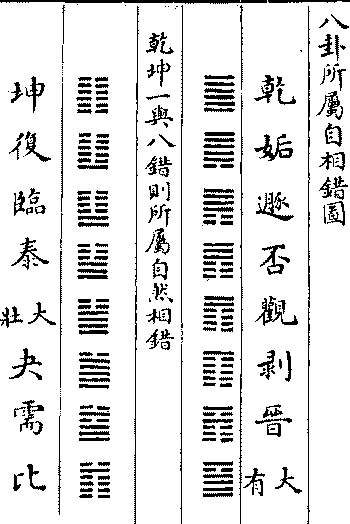 八卦所屬自相錯圖
乾姤遯否觀剥晉大有
乾坤一與八錯則所屬自然相錯
坤復臨泰大壯夬需比